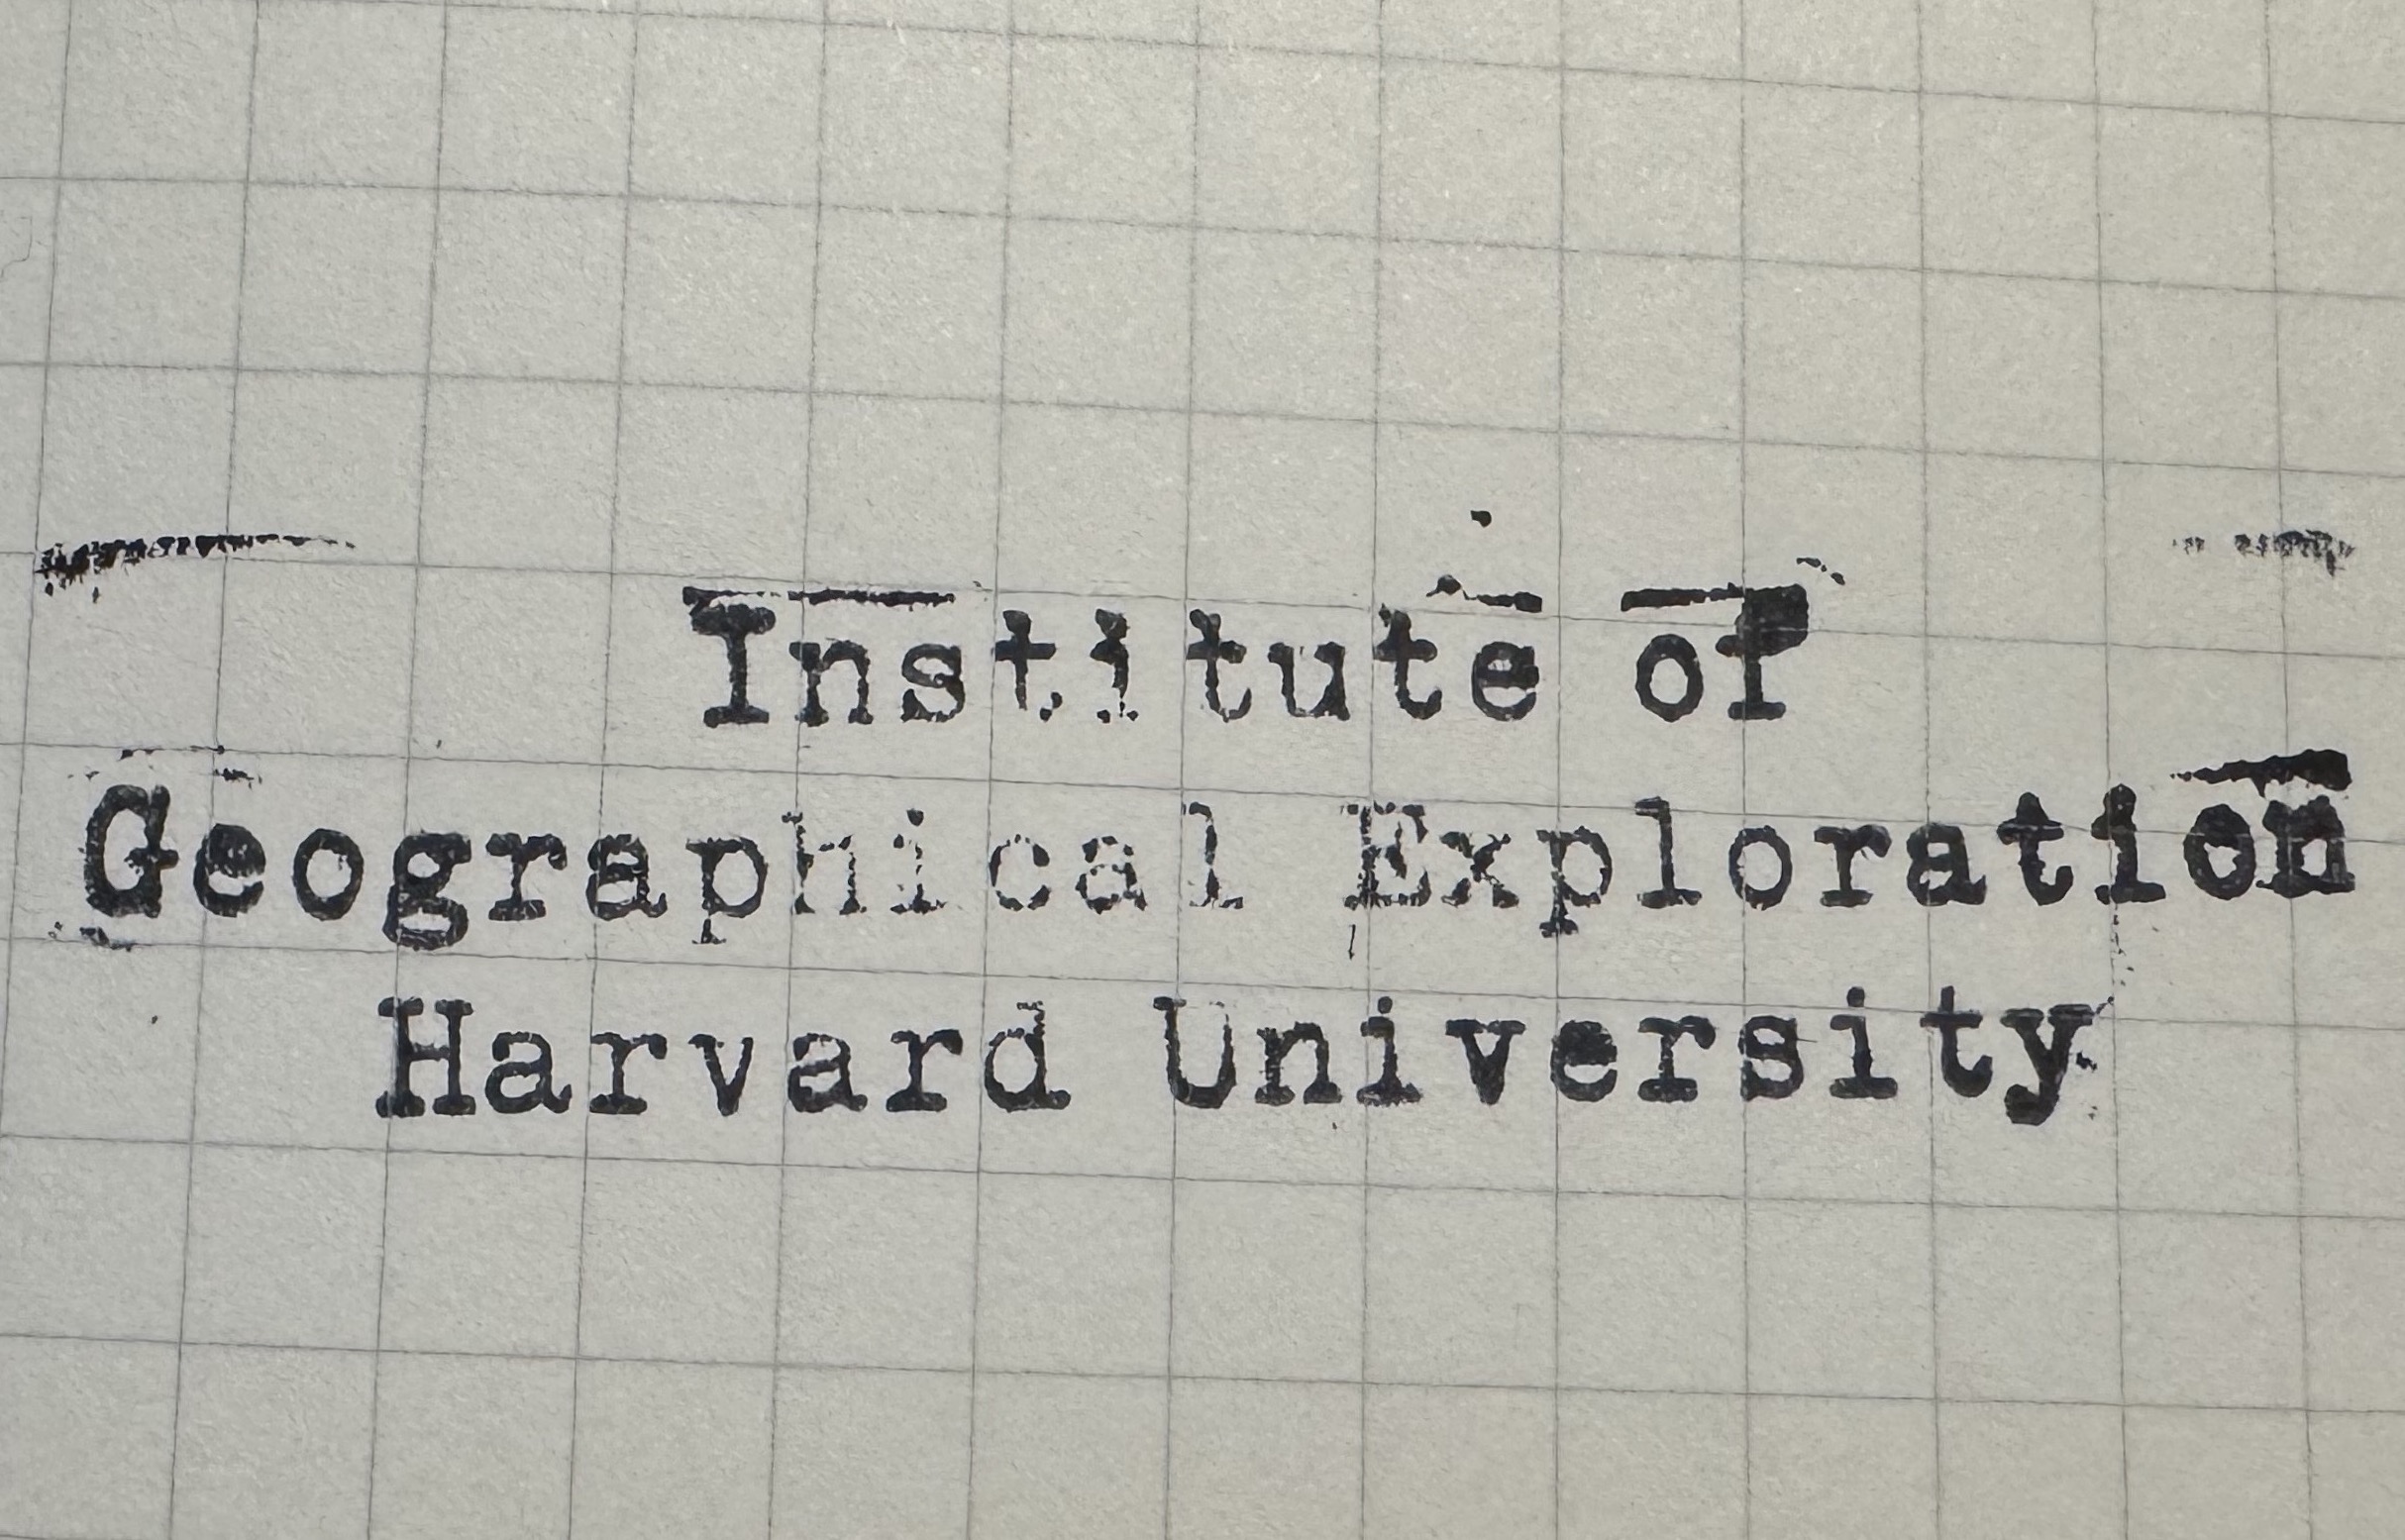 Institute of
Geographical Exploration
Harvard University